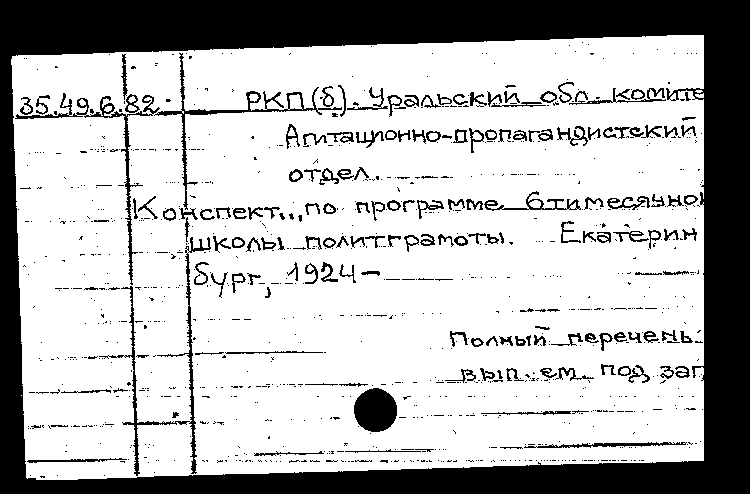 35.49.6.82 РКП(б). Уральский обл. комите
Агитационно-пропагандистский
отдел.
Конспект... по программе 6тимесячной
школы политграмоты. Екатерин
бург, 1924-
Полный перечень
вып. см. под заг